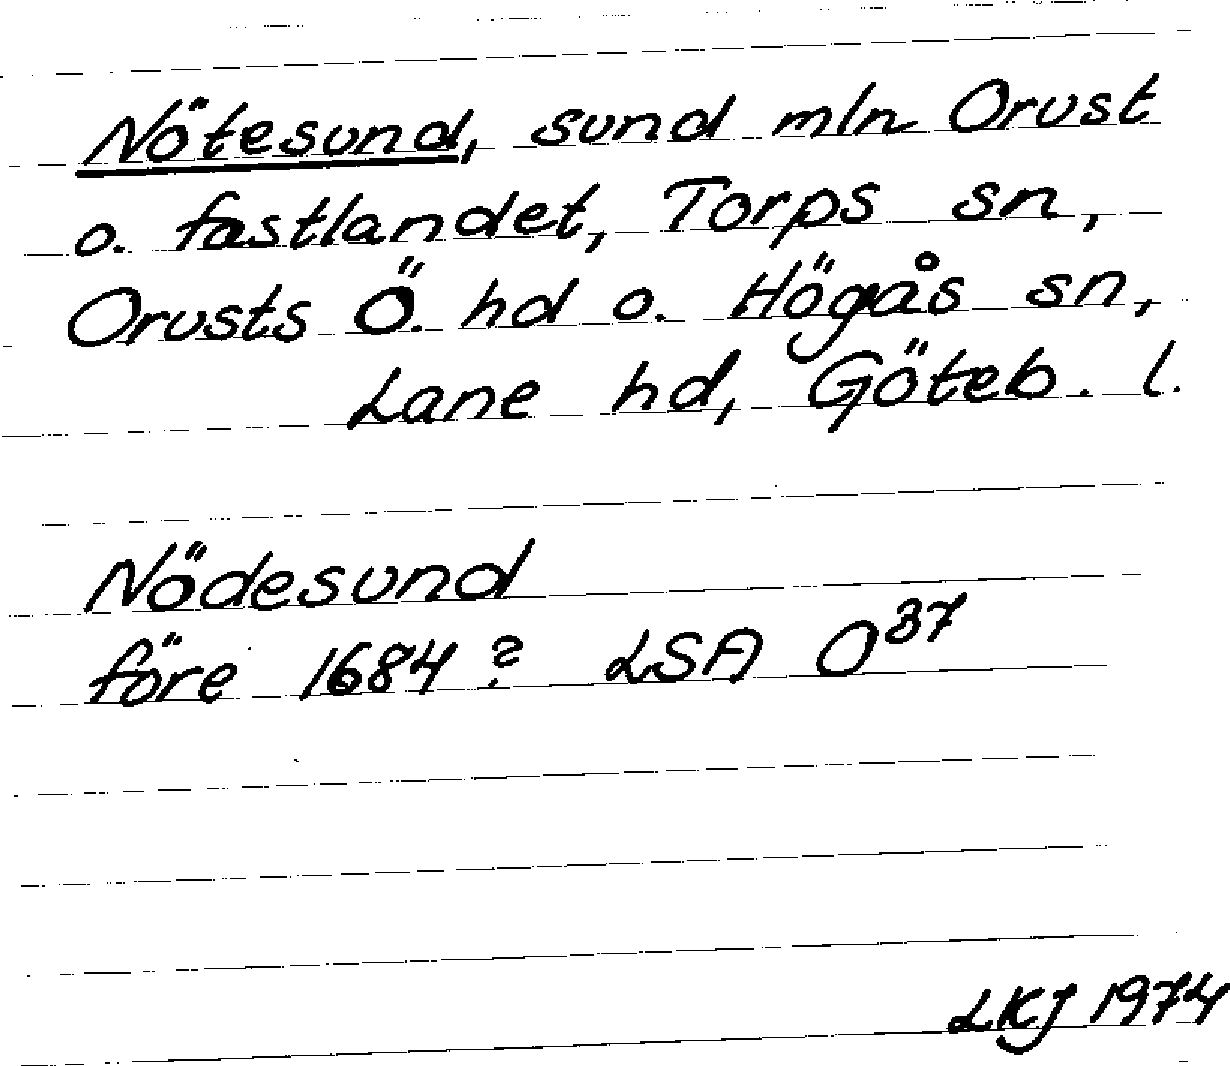 Nötesund, sund mln Orust
o. fastlandet, Torps sn,
Orusts Ö. hd o. Högås sn,
Lane hd, Göteb. l.
Nödesund
före 1684? LSA O³⁷
LKJ 1974